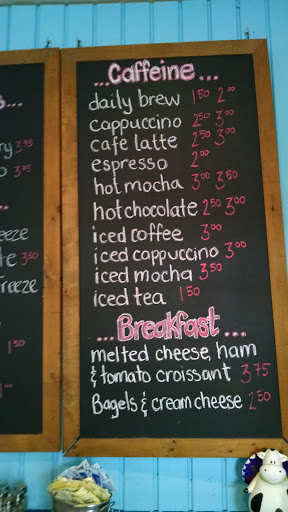 ...Caffeine...
daily brew 1.50 2.00
cappuccino 2.50 3.00
cafe latte 2.50 3.00
espresso 2.00
hot mocha 3.00 3.50
hot chocolate 2.50 3.00
iced coffee 3.00
iced cappuccino 3.00
iced mocha 3.50
iced tea 1.50
...Breakfast...
melted cheese, ham
& tomato croissant 3.75
Bagels & cream cheese 2.50
3.75
3.75
3.50
1.50